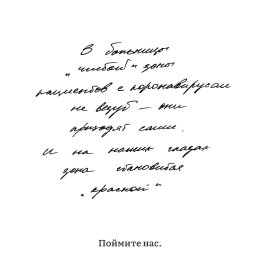 В больницы
„чистой“ зоны
пациентов с коронавирусом
не везут — они
приходят сами.
И на наших глазах
зона становится
„красной“
Поймите нас.